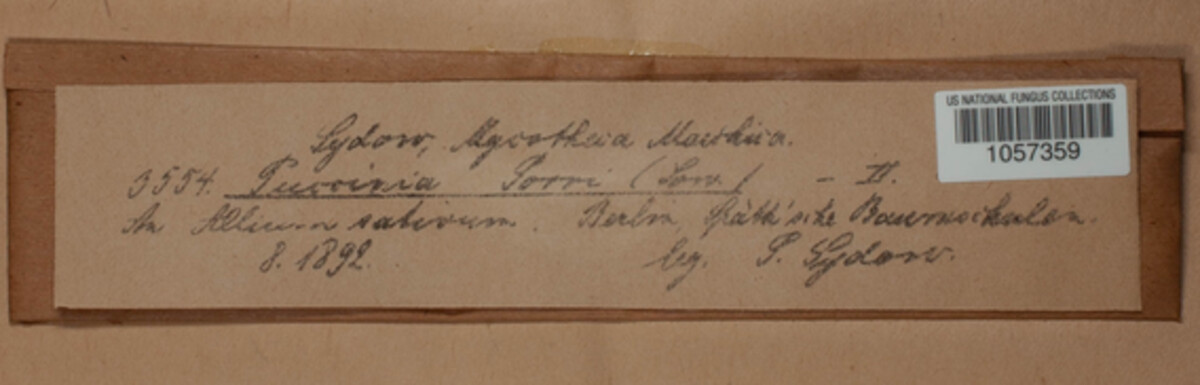 Sydow, Mycotheca Marchica.
3554. Puccinia Porri (Sow.) - II.
An Allium sativum. Berlin, Späth'sche Baumschulen.
8. 1892. leg. P. Sydow.
US NATIONAL FUNGUS COLLECTIONS
1057359